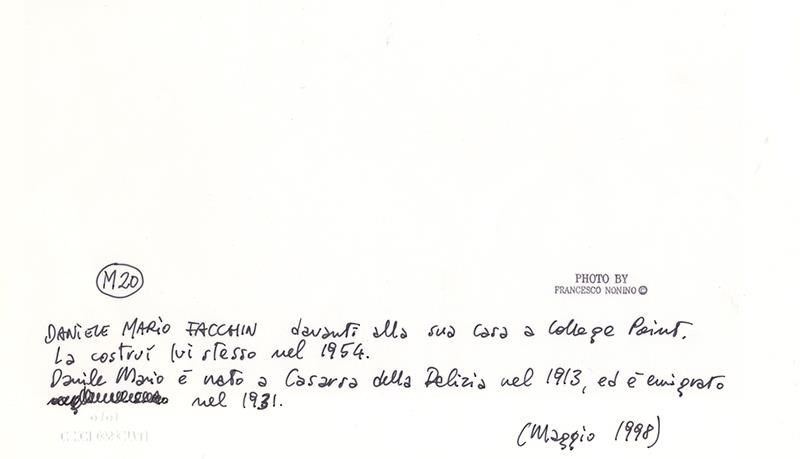 M20
PHOTO BY
FRANCESCO NONINO ©
DANIELE MARIO FACCHIN davanti alla sua casa a College Point.
La costruì lui stesso nel 1954.
Danile Mario è nato a Casarsa della Delizia nel 1913, ed è emigrato
nel 1931.
(Maggio 1998)